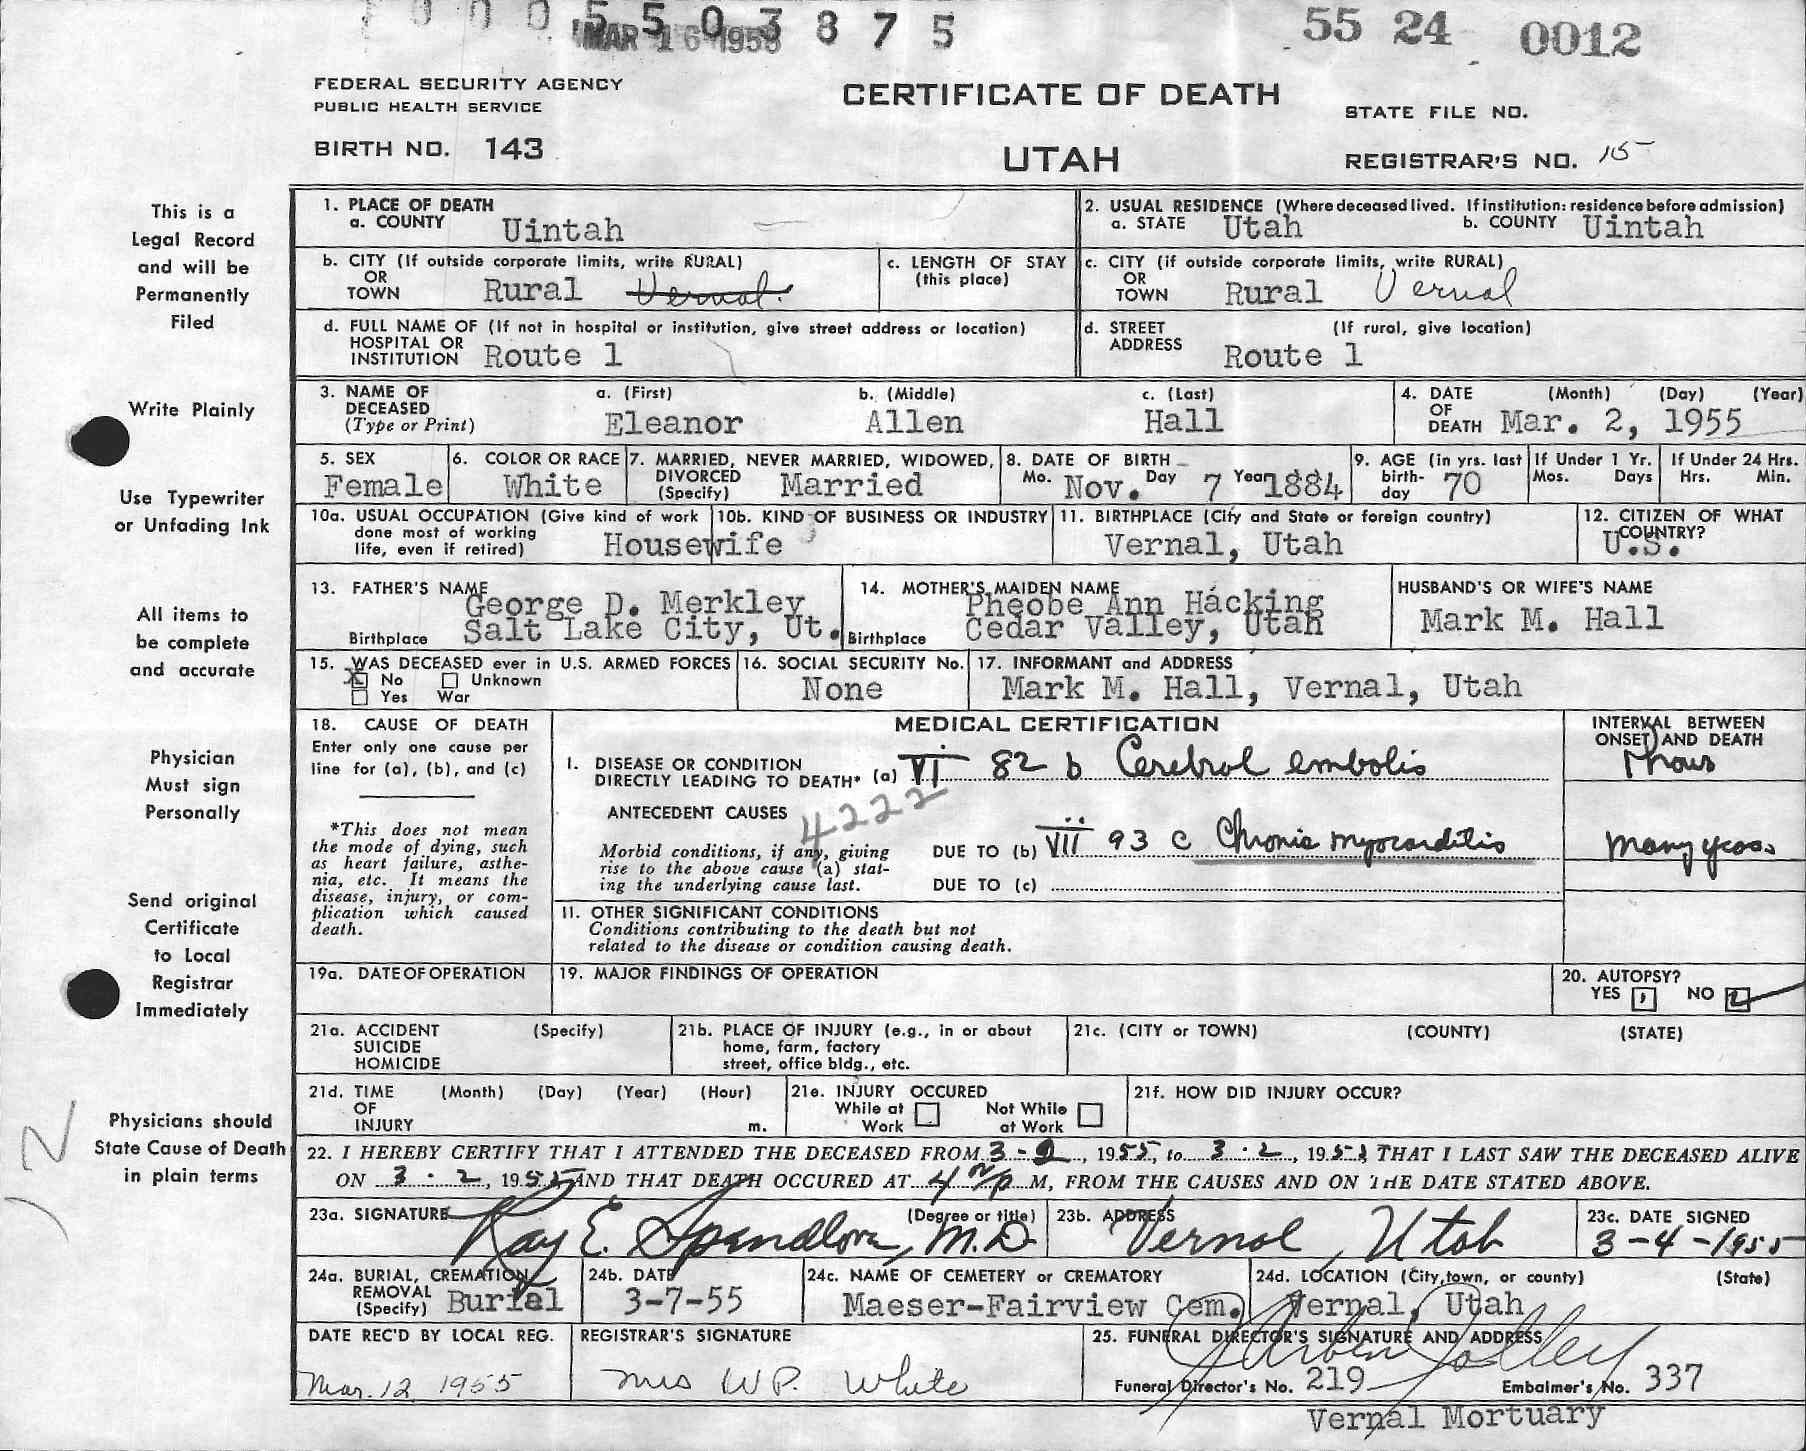 5503875
MAR 16 1955
55 24 0012
FEDERAL SECURITY AGENCY
PUBLIC HEALTH SERVICE
CERTIFICATE OF DEATH
STATE FILE NO.
BIRTH NO. 143
UTAH
REGISTRAR'S NO. 115
This is a
Legal Record
and will be
Permanently
Filed
Write Plainly
Use Typewriter
or Unfading Ink
All items to
be complete
and accurate
Physician
Must sign
Personally
Send original
Certificate
to Local
Registrar
Immediately
Physicians should
State Cause of Death
in plain terms
1. PLACE OF DEATH
a. COUNTY Uintah
2. USUAL RESIDENCE (Where deceased lived. If institution: residence before admission)
a. STATE Utah b. COUNTY Uintah
b. CITY (If outside corporate limits, write RURAL)
OR
TOWN Rural Vernal.
c. LENGTH OF STAY
(this place)
c. CITY (if outside corporate limits, write RURAL)
OR
TOWN Rural Vernal
d. FULL NAME OF (If not in hospital or institution, give street address or location)
HOSPITAL OR
INSTITUTION Route 1
d. STREET (If rural, give location)
ADDRESS Route 1
3. NAME OF
DECEASED
(Type or Print)
a. (First) b. (Middle) c. (Last)
Eleanor Allen Hall
4. DATE (Month) (Day) (Year)
OF
DEATH Mar. 2, 1955
5. SEX
Female
6. COLOR OR RACE
White
7. MARRIED, NEVER MARRIED, WIDOWED,
DIVORCED
(Specify) Married
8. DATE OF BIRTH
Mo. Nov. Day 7 Year 1884
9. AGE (in yrs. last
birth-
day 70
If Under 1 Yr.
Mos. Days
If Under 24 Hrs.
Hrs. Min.
10a. USUAL OCCUPATION (Give kind of work
done most of working
life, even if retired) Housewife
10b. KIND OF BUSINESS OR INDUSTRY
11. BIRTHPLACE (City and State or foreign country)
Vernal, Utah
12. CITIZEN OF WHAT
COUNTRY?
U.S.
13. FATHER'S NAME
George D. Merkley
Birthplace Salt Lake City, Ut.
14. MOTHER'S MAIDEN NAME
Pheobe Ann Hacking
Birthplace Cedar Valley, Utah
HUSBAND'S OR WIFE'S NAME
Mark M. Hall
15. WAS DECEASED ever in U.S. ARMED FORCES
X No Unknown
Yes War
16. SOCIAL SECURITY No.
None
17. INFORMANT and ADDRESS
Mark M. Hall, Vernal, Utah
18. CAUSE OF DEATH
Enter only one cause per
line for (a), (b), and (c)
*This does not mean
the mode of dying, such
as heart failure, asthe-
nia, etc. It means the
disease, injury, or com-
plication which caused
death.
MEDICAL CERTIFICATION
INTERVAL BETWEEN
ONSET AND DEATH
I. DISEASE OR CONDITION
DIRECTLY LEADING TO DEATH* (a) VI 82 b Cerebral embolis
hours
ANTECEDENT CAUSES
4222
Morbid conditions, if any, giving
rise to the above cause (a) stat-
ing the underlying cause last.
DUE TO (b) VII 93 c Chronic myocarditis
many years
DUE TO (c)
II. OTHER SIGNIFICANT CONDITIONS
Conditions contributing to the death but not
related to the disease or condition causing death.
19a. DATE OF OPERATION
19. MAJOR FINDINGS OF OPERATION
20. AUTOPSY?
YES 1 NO 2
21a. ACCIDENT (Specify)
SUICIDE
HOMICIDE
21b. PLACE OF INJURY (e.g., in or about
home, farm, factory
street, office bldg., etc.
21c. (CITY or TOWN) (COUNTY) (STATE)
21d. TIME (Month) (Day) (Year) (Hour)
OF
INJURY m.
21e. INJURY OCCURED
While at
Work
Not While
at Work
21f. HOW DID INJURY OCCUR?
22. I HEREBY CERTIFY THAT I ATTENDED THE DECEASED FROM 3-2, 1955, to 3-2, 1955 THAT I LAST SAW THE DECEASED ALIVE
ON 3-2, 1955 AND THAT DEATH OCCURED AT 4 P M, FROM THE CAUSES AND ON THE DATE STATED ABOVE.
23a. SIGNATURE (Degree or title)
Ray E. Spendlove, M.D.
23b. ADDRESS
Vernal, Utah
23c. DATE SIGNED
3-4-1955
24a. BURIAL, CREMATION
REMOVAL
(Specify) Burial
24b. DATE
3-7-55
24c. NAME OF CEMETERY or CREMATORY
Maeser-Fairview Cem.
24d. LOCATION (City, town, or county) (State)
Vernal, Utah
DATE REC'D BY LOCAL REG.
Mar. 12, 1955
REGISTRAR'S SIGNATURE
Mrs W.P. White
25. FUNERAL DIRECTOR'S SIGNATURE AND ADDRESS
Funeral Director's No. 219 Embalmer's No. 337
Vernal Mortuary